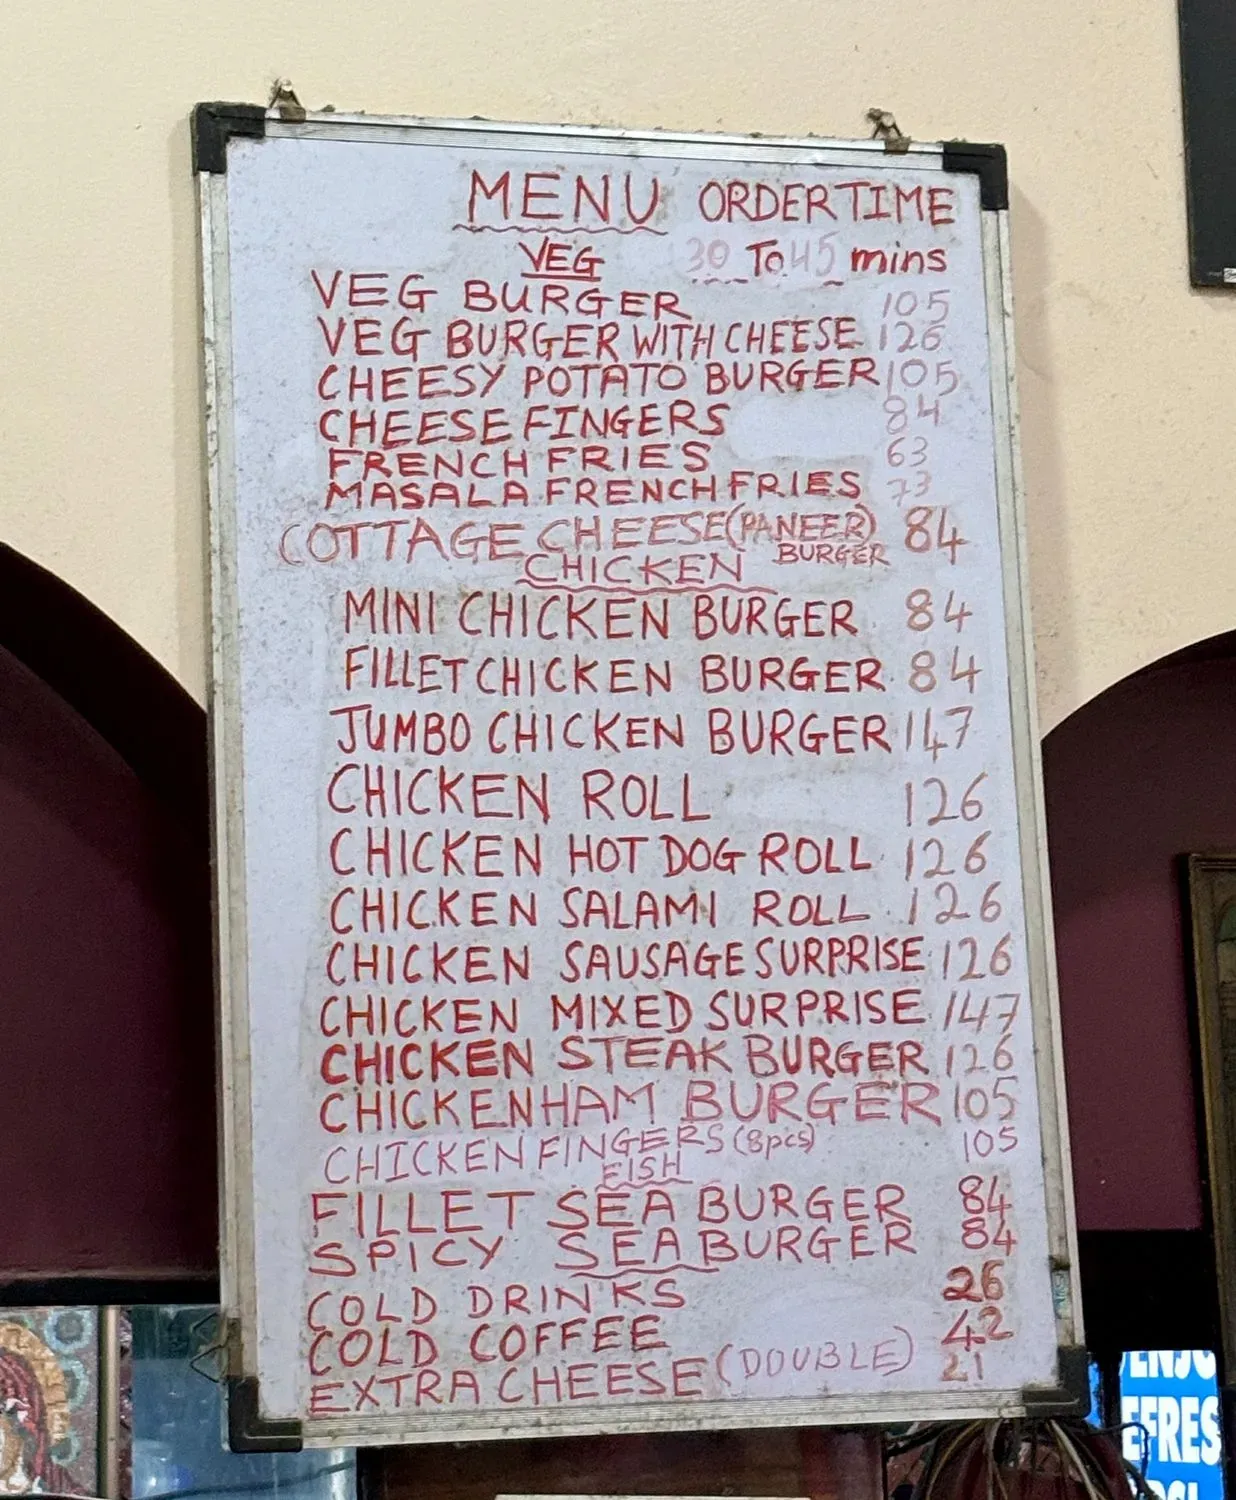 MENU ORDER TIME
VEG 30 To 45 mins
VEG BURGER 105
VEG BURGER WITH CHEESE 126
CHEESY POTATO BURGER 105
CHEESE FINGERS 84
FRENCH FRIES 63
MASALA FRENCH FRIES 73
COTTAGE CHEESE (PANEER) BURGER 84
CHICKEN
MINI CHICKEN BURGER 84
FILLET CHICKEN BURGER 84
JUMBO CHICKEN BURGER 147
CHICKEN ROLL 126
CHICKEN HOT DOG ROLL 126
CHICKEN SALAMI ROLL 126
CHICKEN SAUSAGE SURPRISE 126
CHICKEN MIXED SURPRISE 147
CHICKEN STEAK BURGER 126
CHICKEN HAM BURGER 105
CHICKEN FINGERS (8pcs) 105
FISH
FILLET SEA BURGER 84
SPICY SEA BURGER 84
COLD DRINKS 26
COLD COFFEE 42
EXTRA CHEESE (DOUBLE) 21